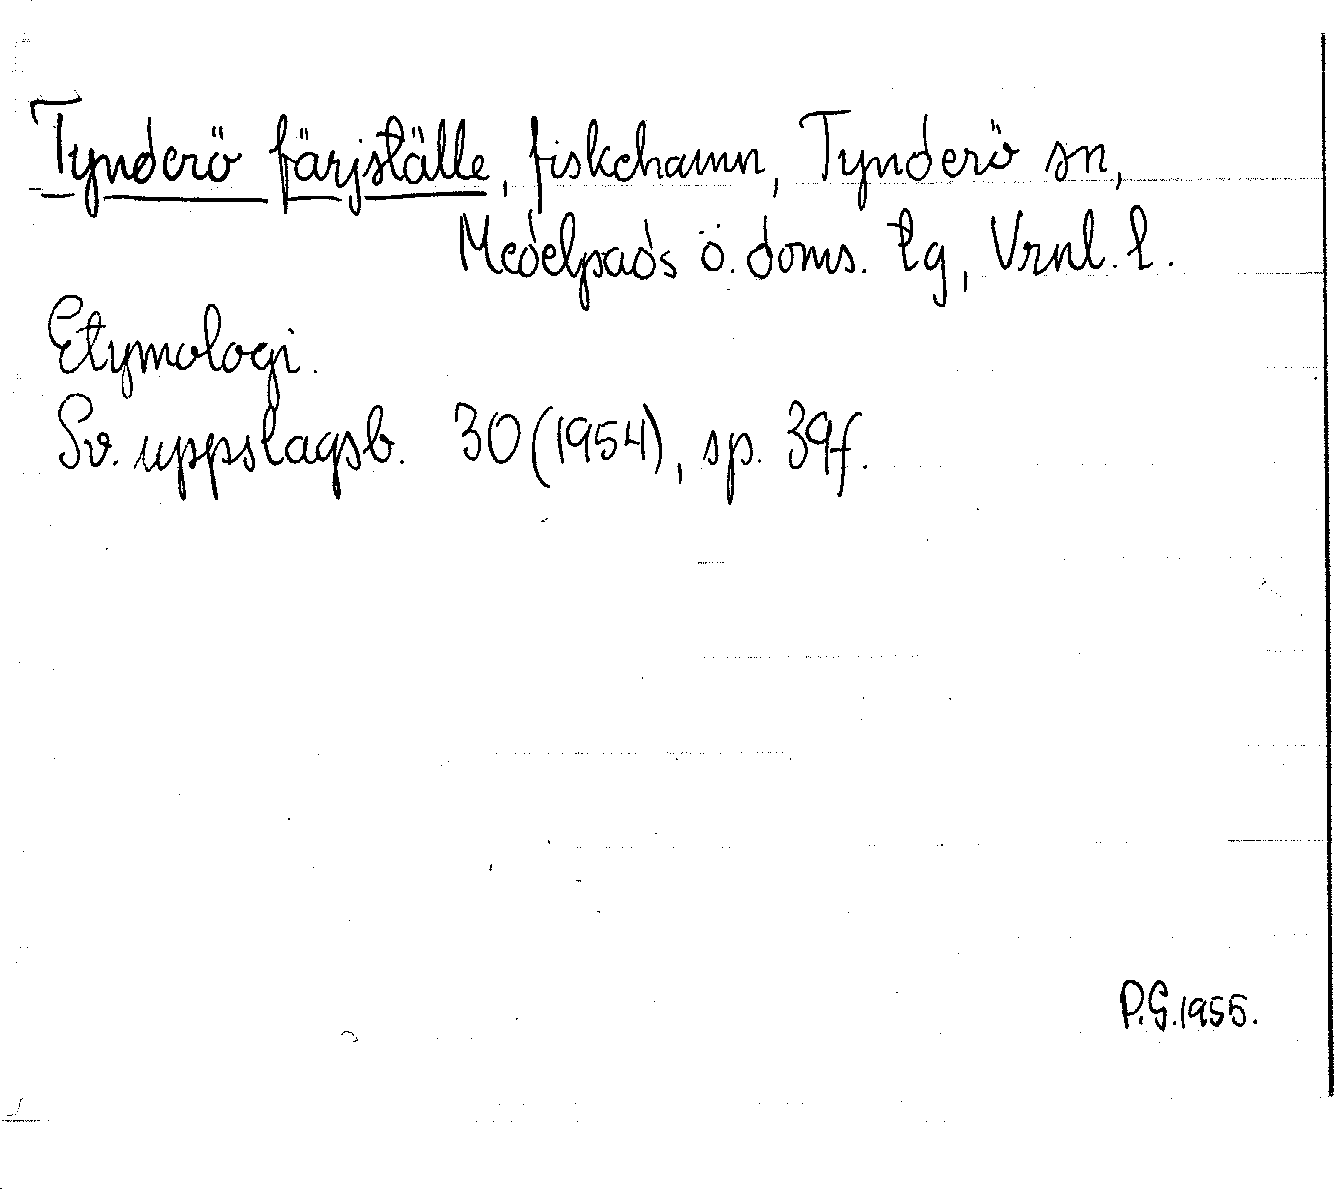 Tynderö färjställe, fiskehamn, Tynderö sn,
Medelpads ö. doms. tg, Vrnl. l.
Etymologi.
Sv. uppslagsb. 30 (1954), sp. 39f.
P.G. 1955.